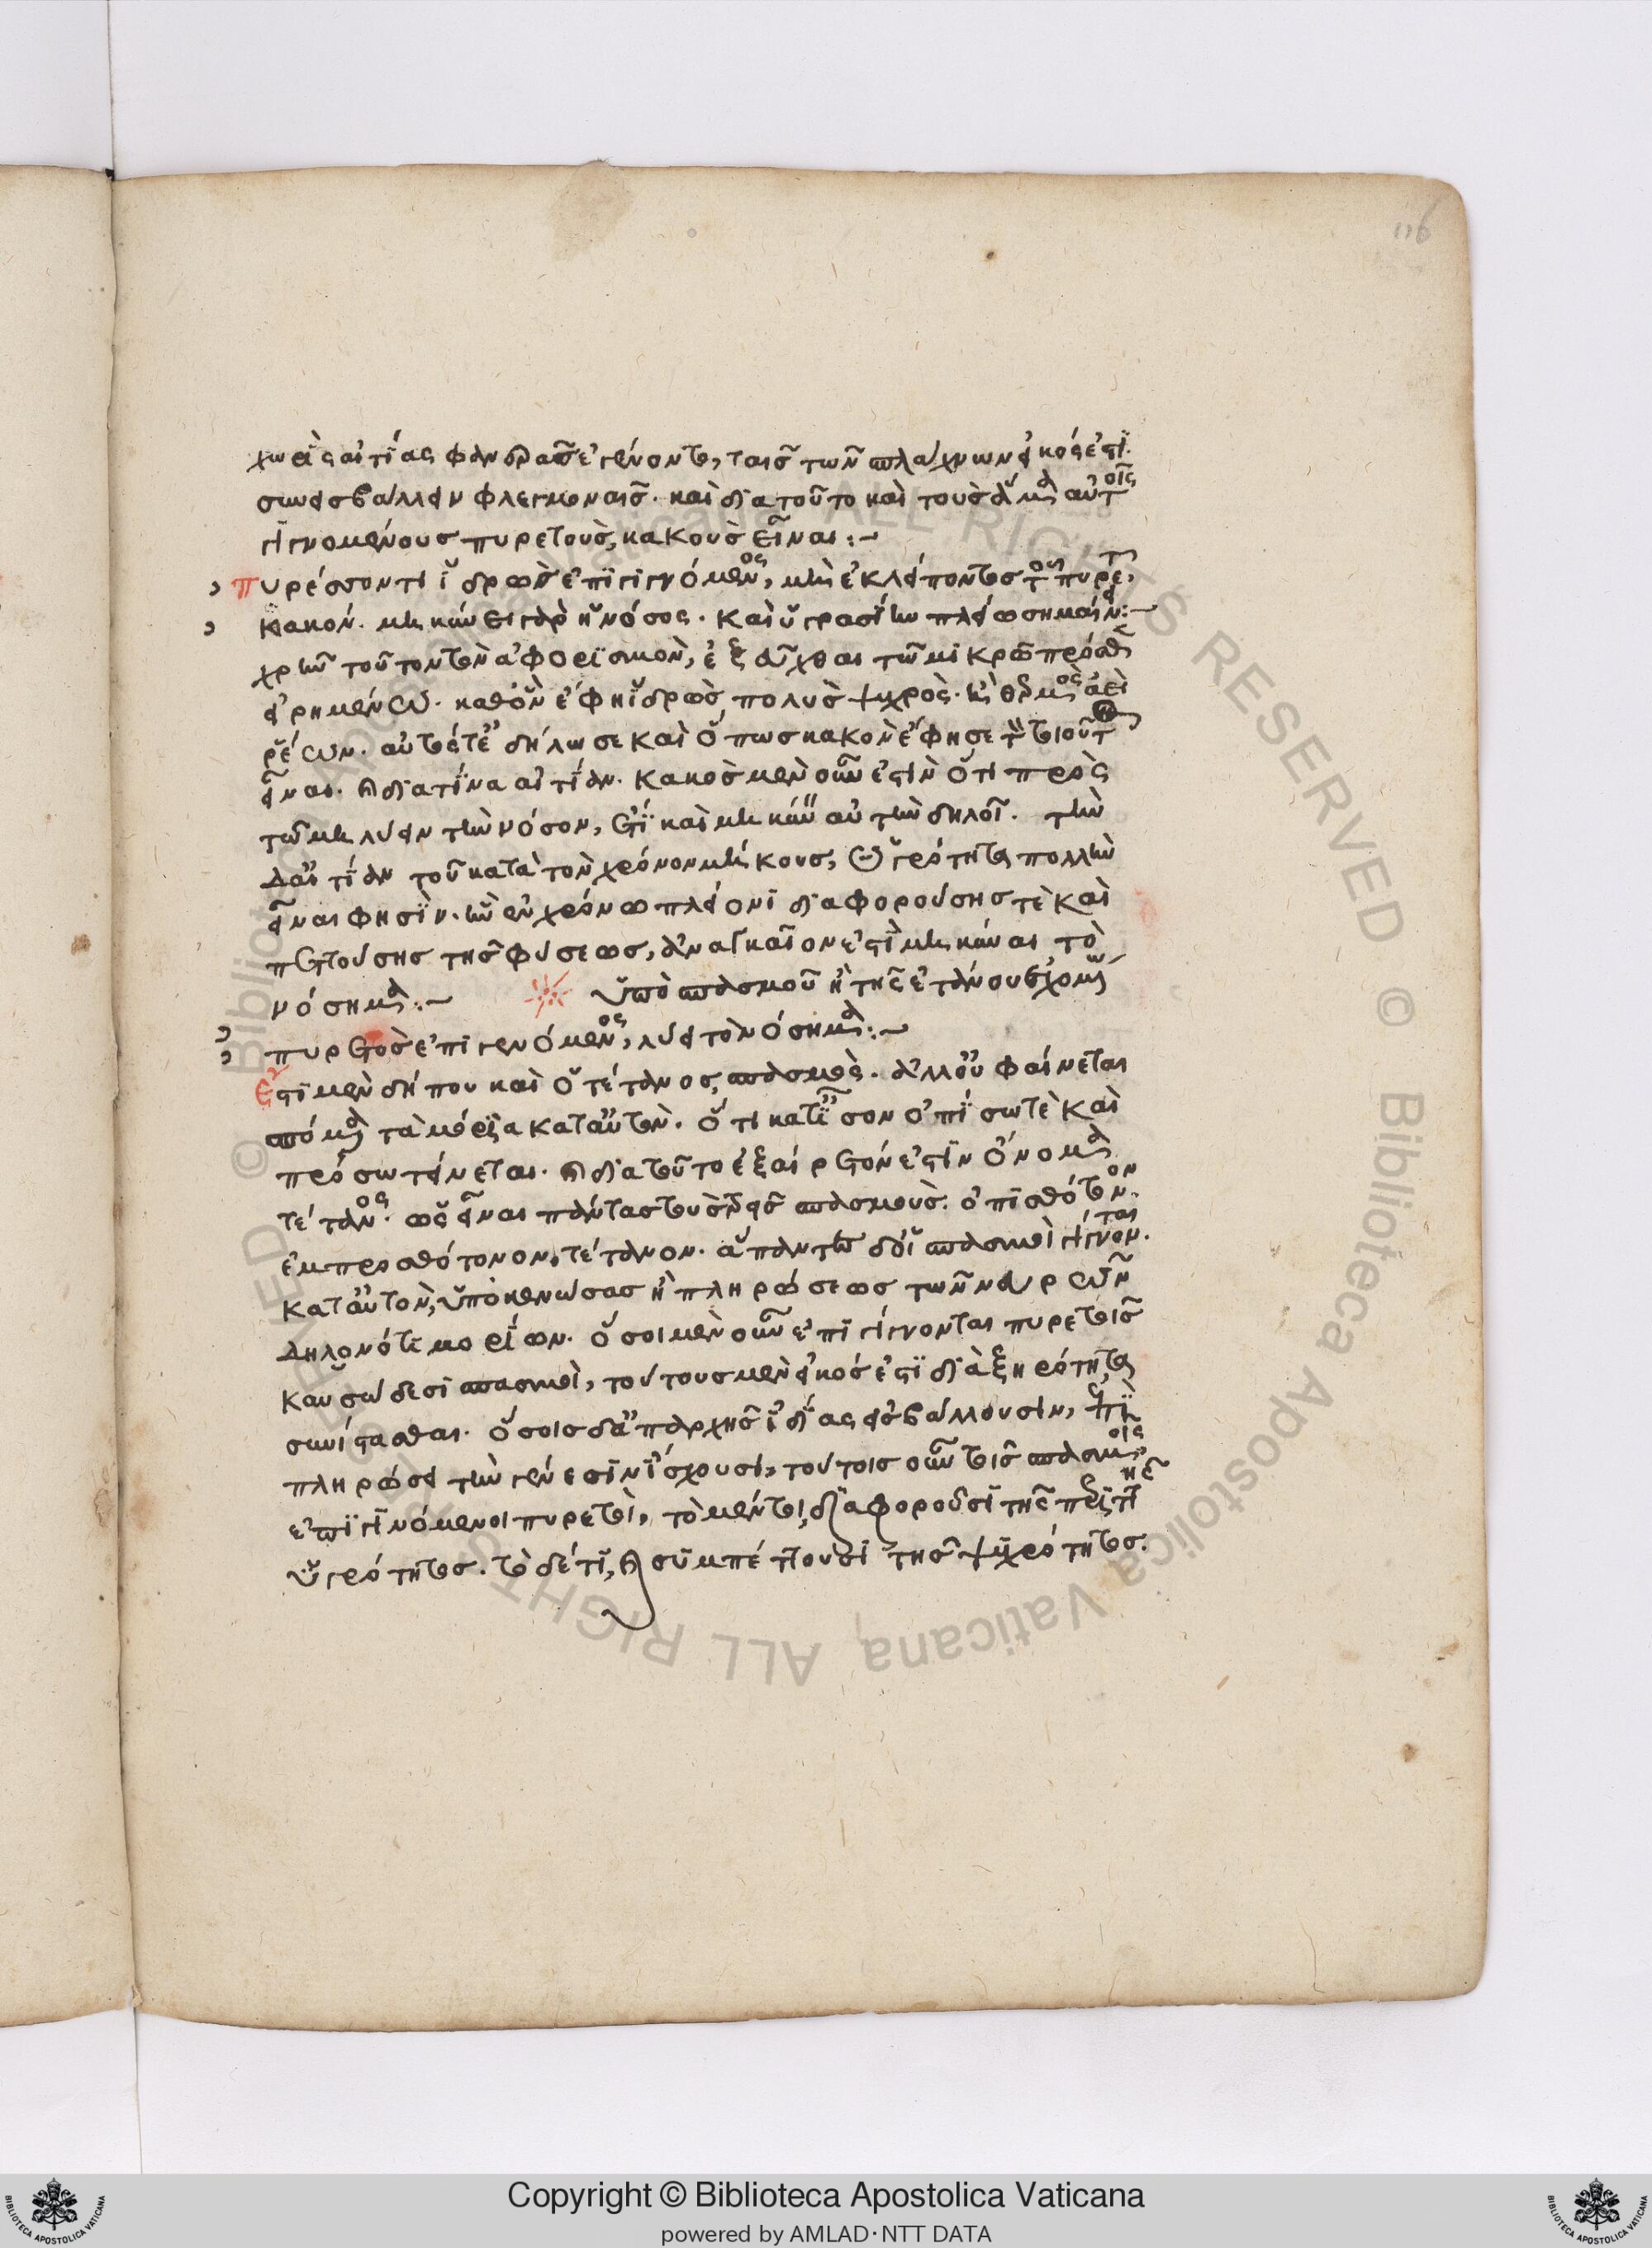 116
χωρὶς αἰτίας φανερᾶς ἐγένοντο, ταῖς τῶν σπλάγχνων εἰκός ἐστι
συνεισβάλλειν φλεγμοναῖς. καὶ διὰ τοῦτο καὶ τοὺς ἅμα αὐτοῖς
γιγνομένους πυρετοὺς, κακοὺς εἶναι:~
πυρέσσοντι ἱδρὼς ἐπιγιγνόμενος, μὴ ἐκλείποντος τοῦ πυρετ,
κακόν. μηκύνει γὰρ ἡ νόσος. καὶ ὑγρασίην πλείω σημαίνει:~
χρὴ τοῦτον τὸν ἀφορισμὸν, ἐξελέγχθαι τῶν μικρῷ πρόσθεν
εἰρημένων. καθ' ὃν ἔφη ἱδρὼς πολὺς ψυχρὸς. ἢ θερμὸς ἀεὶ
ῥέων. αὐτὸς τὲ δήλωσε καὶ ὅπως κακὸν ἔφησε τὸ τοιοῦτον
εἶναι. καὶ διὰ τίνα αἰτίαν. κακὸς μὲν οὖν ἐστὶν ὅτι πρὸς
τῷ μὴ λύειν τὴν νόσον, ἔτι καὶ μηκύνειν αὐτὴν δηλοῖ. τὴν
δ' αἰτίαν τοῦ κατὰ τὸν χρόνον μήκους, ὑγρότητα πολλὴν
εἶναι φησὶν. ἣν ἐν χρόνῳ πλείονι διαφορούσης τὲ καὶ
πεττούσης τῆς φύσεως, ἀναγκαῖον ἐστὶ μηκύναι τὸ
νόσημα:~ ὑπὸ σπασμοῦ ἢ τῆς τετάνου ἐχομένῳ
πυρετὸς ἐπιγενόμενος, λύει τὸ νόσημα:~
Ἐστὶ μὲν δήπου καὶ ὁ τέτανος, σπασμὸς. ἀλλ' οὐ φαίνεται
σπώμενα τὰ μόρια κατ' αὐτὸν. ὅτι κατ' ἴσον ὀπίσω τὲ καὶ
πρόσω τείνεται. καὶ διὰ τοῦτο ἐξαίρετόν ἐστιν ὄνομα
τέτανος. ὡς εἶναι πάντας τοὺς τρεῖς σπασμοὺς. ὀπισθότονον.
ἐμπροσθότονον, τέτανον. ἁπάντων δ' οἱ σπασμοὶ γίγνονται.
κατ' αὐτὸν, ὑπὸ κενώσεως ἢ πληρώσεως τῶν νευρωδῶν
δηλονότι μορίων. ὅσοι μὲν οὖν ἐπιγίγνονται πυρετοῖς
καυσώδεσι σπασμοὶ, τούτους μὲν εἰκός ἐστι διὰ ξηρότητα
συνίστασθαι. ὅσοις δ' ἀπ' ἀρχῆς ἰδίας εἰσβάλλουσιν, ἐπὶ
πληρώσει τὴν γένεσιν ἴσχουσι, τούτοις οὖν τοῖς σπασμοῖς
ἐπιγινόμενοι πυρετοὶ, τὸ μέν τοι, διαφοροῦσι τῆς περιττῆς
ὑγρότητος. τὸ δέ τι, καὶ συμπέττουσι τῆς ψυχρότητος.
Copyright © Biblioteca Apostolica Vaticana
powered by AMLAD·NTT DATA